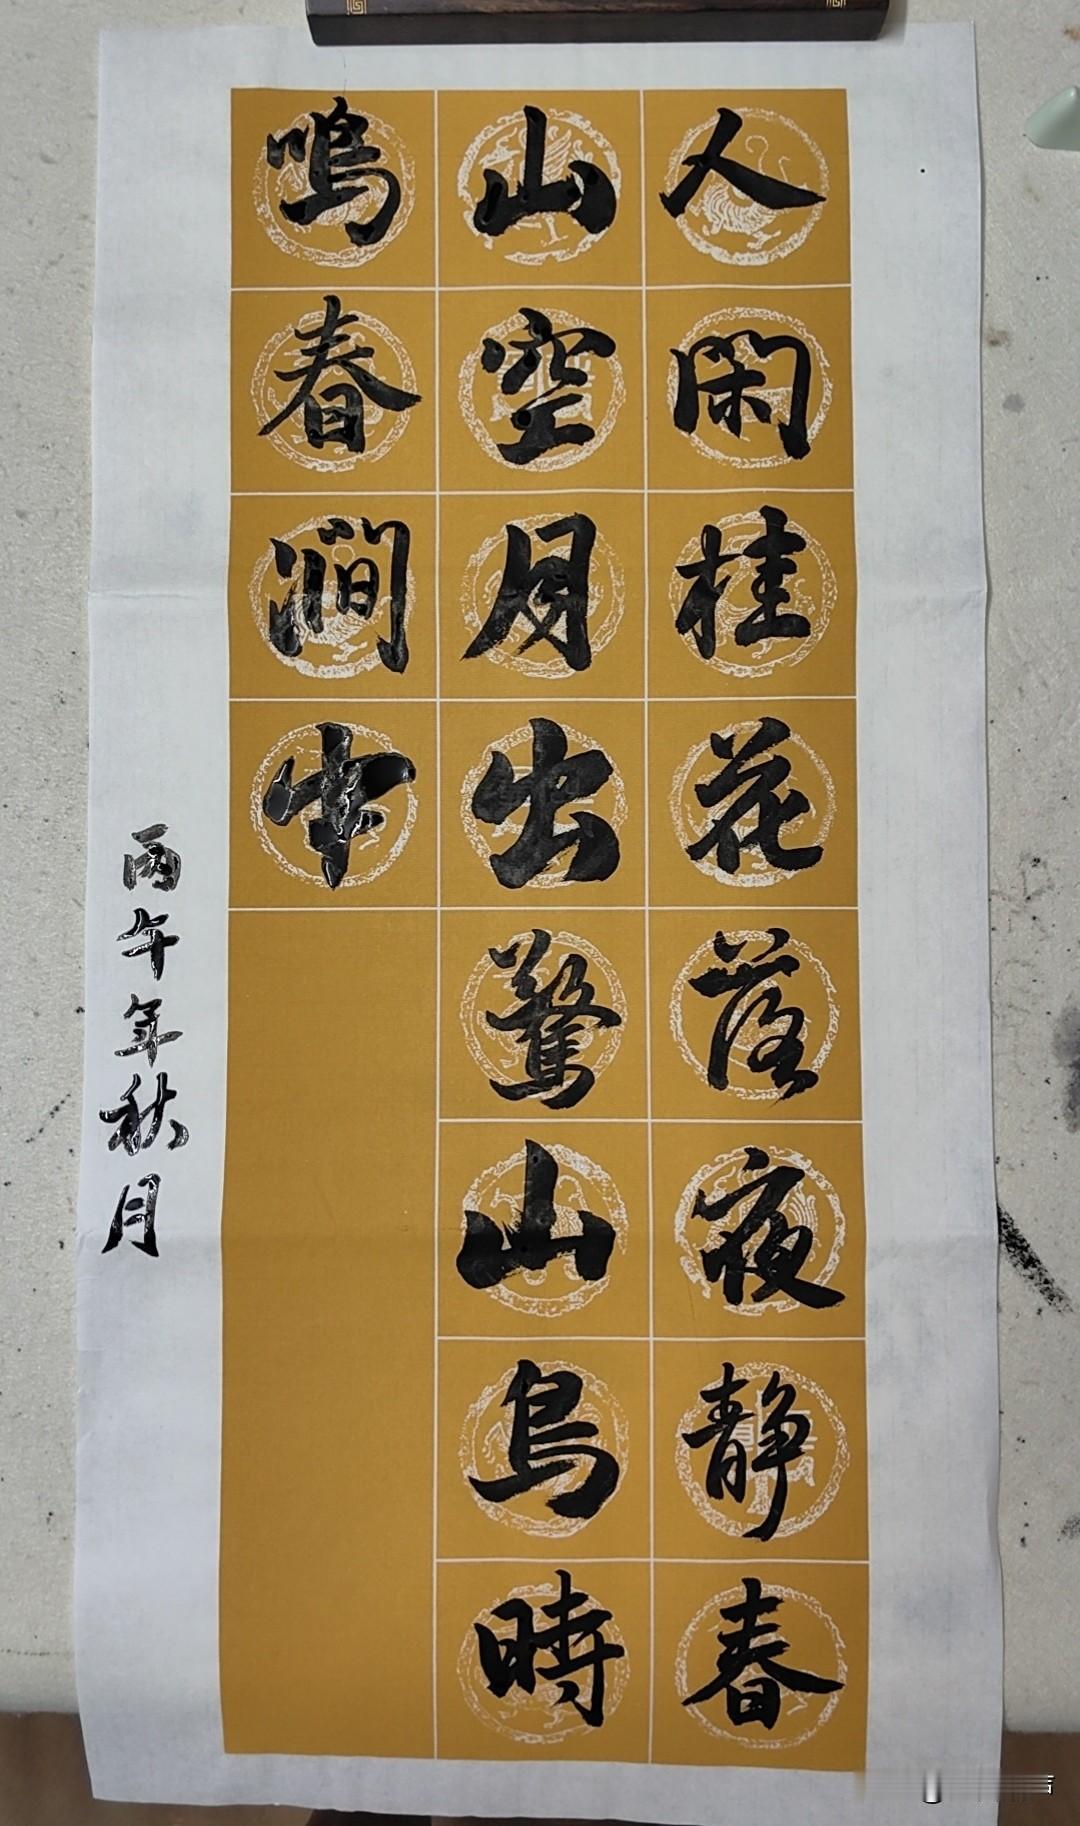 人閑桂花落夜静春
山空月出驚山鳥時
鳴春澗中
丙午年秋月